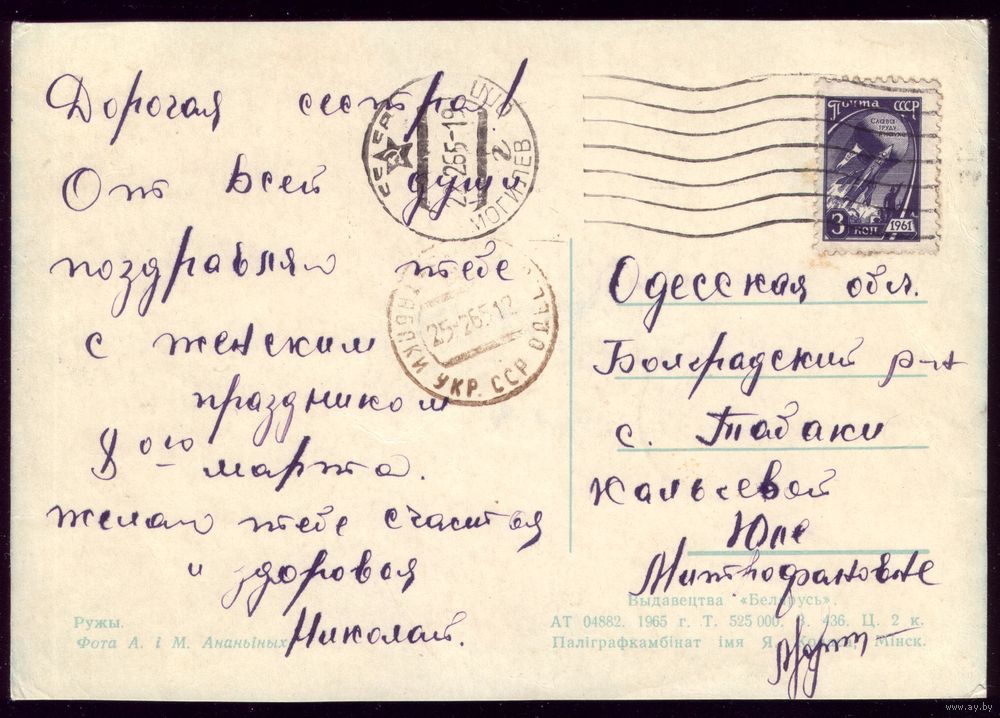 Дорогая сестра!
От всей души
поздравляю тебе
с женским
праздником
8ого марта.
желаю тебе счастья
и здоровья
Николай.
Ружы.
Фота А. і М. Ананьіных
МОГИЛЕВ
25-265 12
УКР. ССР ОДЕС
Почта СССР
СЛАВА
ТРУДУ
3 коп 1961
Одесская обл.
Болградский р-н
с. Табаки
Кальчевой
Юле
Митрофановне
Выдавецтва «Беларусь».
АТ 04882. 1965 г. Т. 525 000. З. 436. Ц. 2 к.
Паліграфкамбінат імя Я. Коласа, Мінск.
www.ay.by